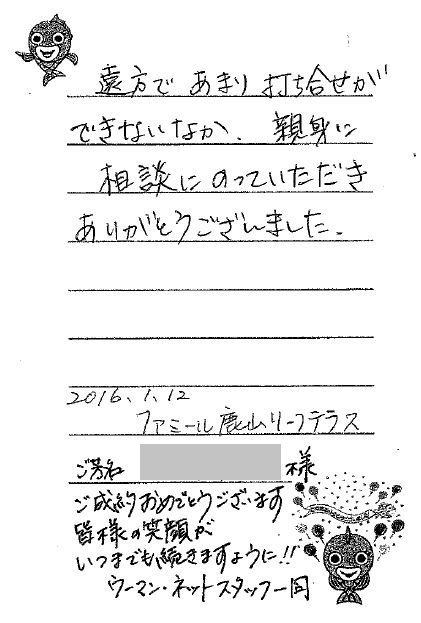 遠方で あまり 打ち合せが
できないなか、 親身に
相談に のっていただき
ありがとうございました。
2016.1.12
ファミール鹿山リーフテラス
ご芳名 様
ご成約おめでとうございます
皆様の笑顔が
いつまでも続きますように!!
ウーマン・ネットスタッフ一同